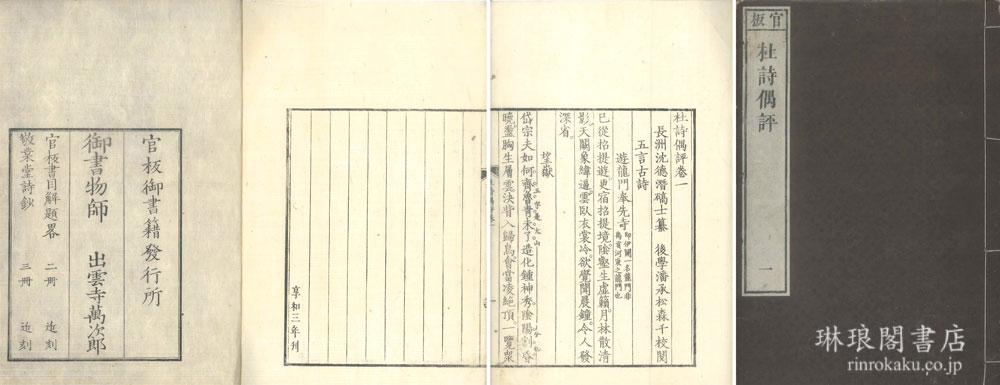 官板
杜詩偶評
一
琳琅閣書店
rinrokaku.co.jp
杜詩偶評卷一
長洲沈德潛碻士纂　後學潘承松森千校閱
五言古詩
遊龍門奉先寺
已從招提遊更宿招提境陰壑生虛籟月林散清
影天闕象緯逼雲臥衣裳冷欲覺聞晨鐘令人發
深省
望嶽
岱宗夫如何齊魯青未了造化鍾神秀陰陽割昏
曉盪胸生層雲決眥入歸鳥會當凌絕頂一覽衆
享和三年刊
官板御書籍發行所
御書物師　出雲寺萬次郎
官板書目解題畧　二冊　近刻
敬業堂詩鈔　三冊　近刻